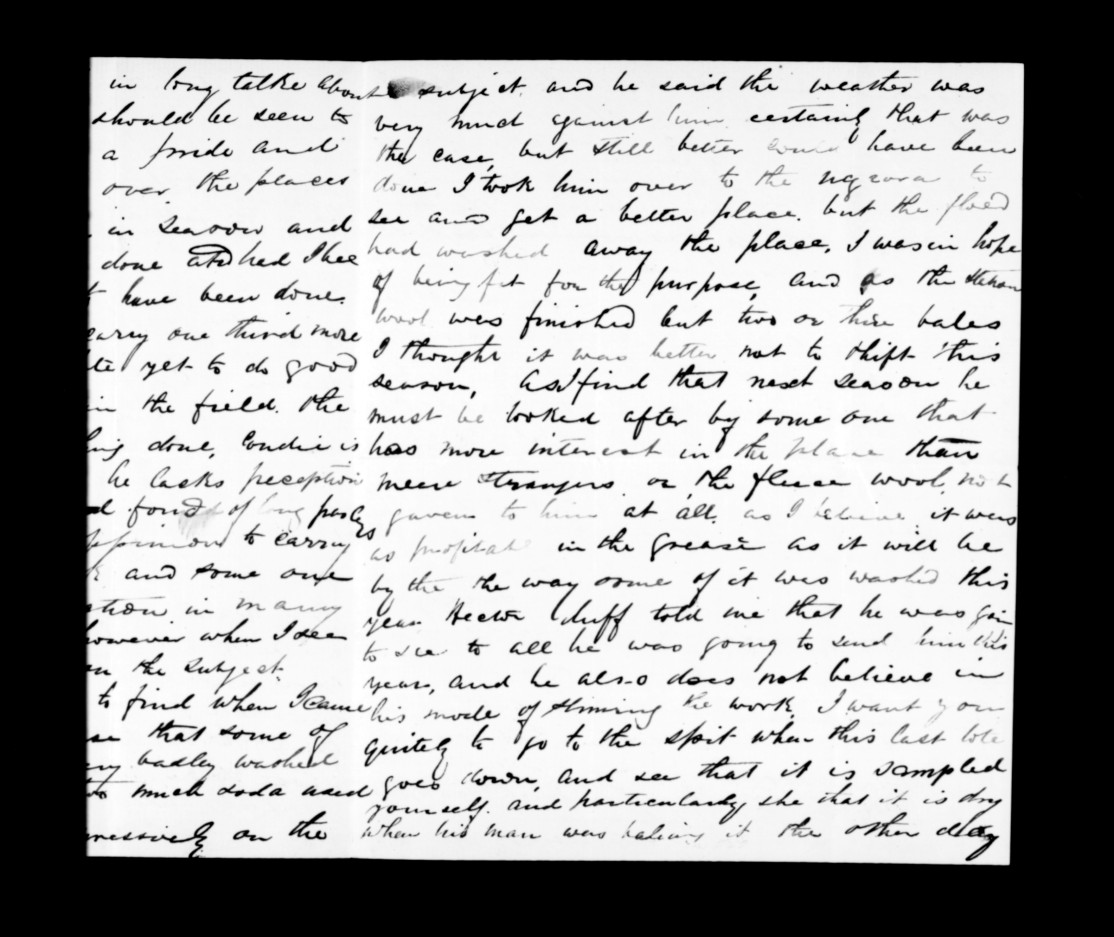 in long talke about
should be seen to
a pride and
over the places
in season and
done and had I bee
have been done.
carry one third more
yet to do good
in the field. the
done, Condie is
he lacks peception
fond of long
to carry
and some one
in many
however when I see
on the subject.
to find when I came
that some of
badley washed
much soda used
on the
subject. and he said the weather was
very much against him certainly that was
the case, but still better could have been
done I took him over to the ngaruro to
see and get a better place. but the flood
had washed away the place, I was in hope
of being fit for the purpose, and as the station
wool was finished but two or three bales
I thought it was better not to shift this
season, As I find that next season he
must be looked after by some one that
has more interest in the place than
meere strangers. or the fleece wool, not
gaven to him at all. as I believe it was
as profitable in the grease as it will be
by the the way some of it was washed this
year Hector duff told me that he was goin
to see to all he was going to send him this
year, and he also does not believe in
his mode of the work, I want you
quitely to go to the spit when this last lote
goes down, and see that it is sampled
yourself. and particularly she that it is dry
when his man was baling it the other day